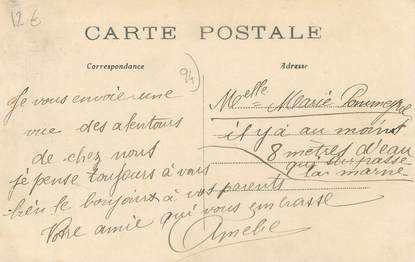 12 €
CARTE POSTALE
Correspondance
Adresse
94
Je vous envoie une
vue des alentours
de chez nous
je pense toujours à vous
bien le bonjour à vos parents
Votre amie qui vous embrasse
Amelie
Melle Marie
il y a au moins
8 metres d'eau
qui surpasse
la marne